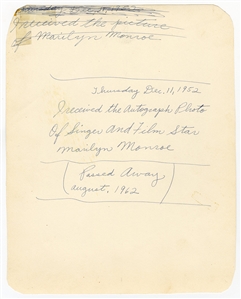 I received the picture
of Marilyn Monroe
Thursday Dec. 11, 1952
I received the Autograph Photo
Of Singer And Film Star
Marilyn Monroe
(Passed Away
August, 1962)